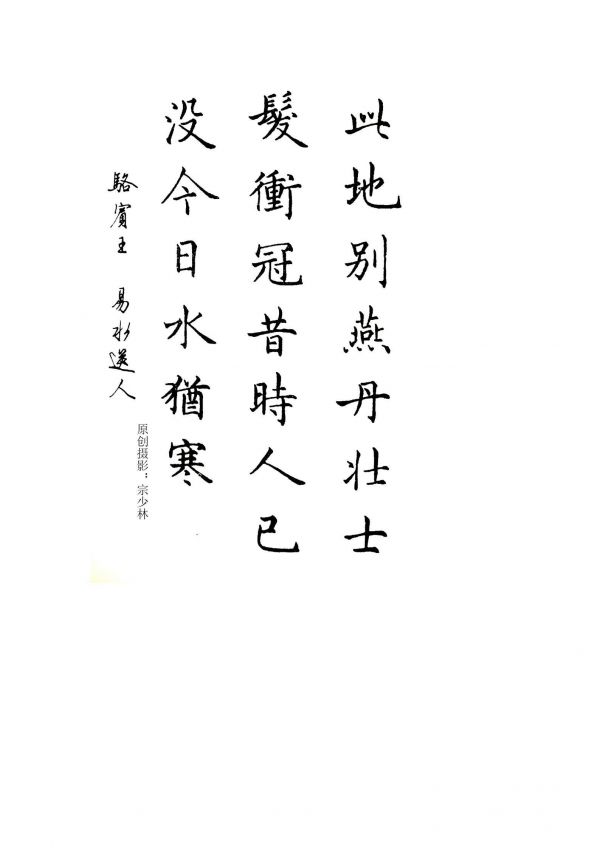 此地别燕丹壮士
髮衝冠昔時人已
没今日水猶寒
駱賓王 易水送人
原创摄影：宗少林